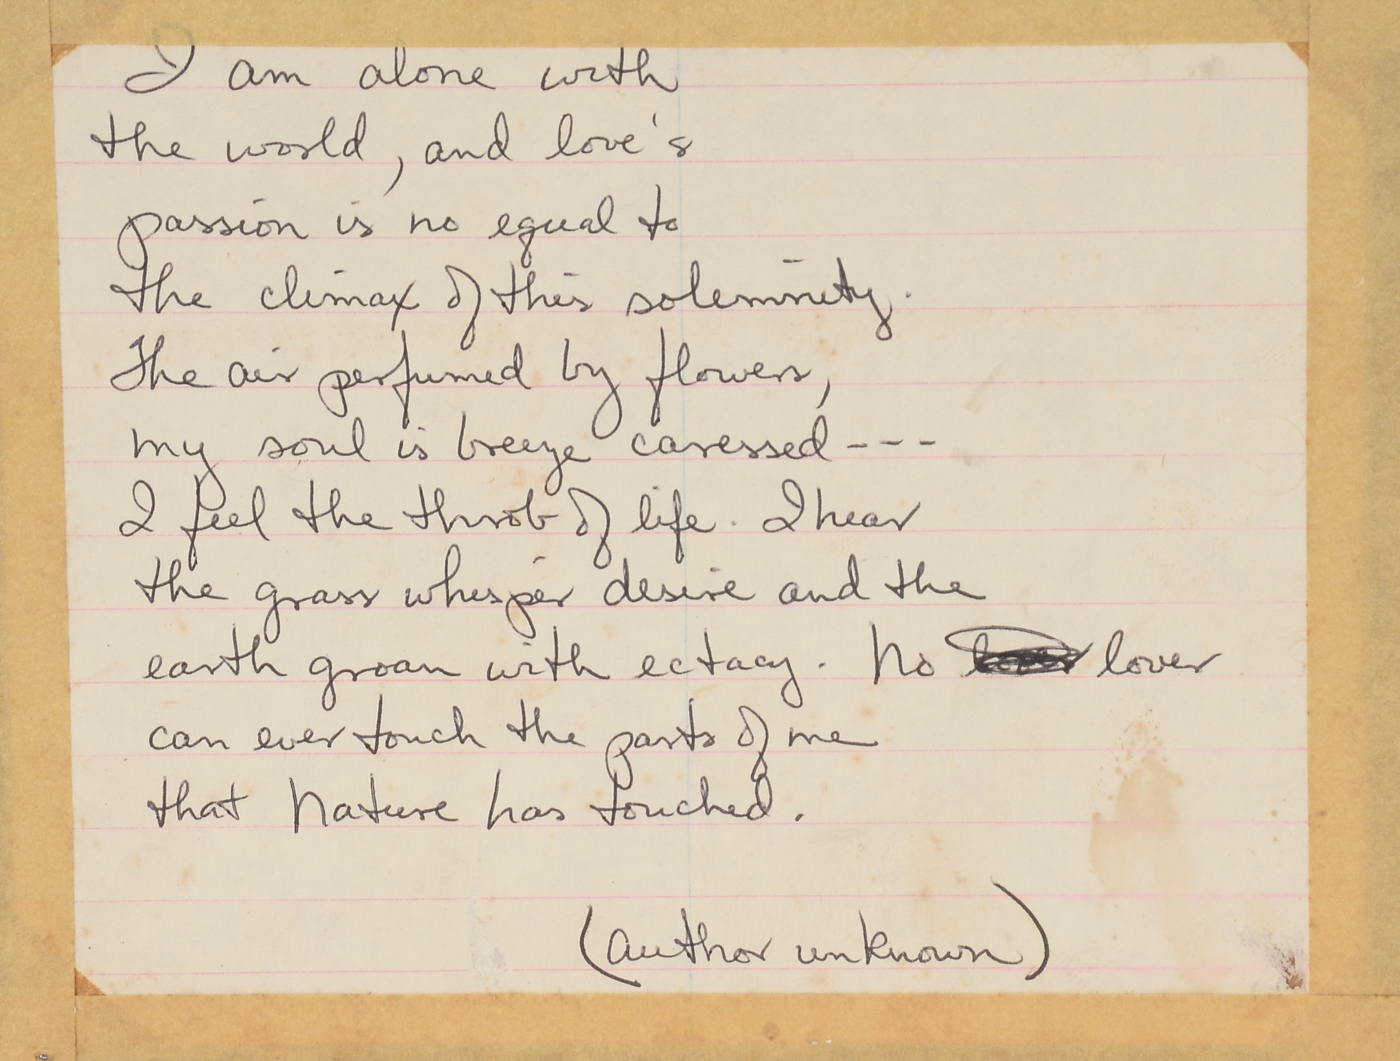 I am alone with
the world, and love's
passion is no equal to
the climax of this solemnity.
The air perfumed by flowers,
my soul is breeze caressed ---
I feel the throb of life. I hear
the grass whisper desire and the
earth groan with ectacy. No lover
can ever touch the parts of me
that Nature has touched.
(author unknown)